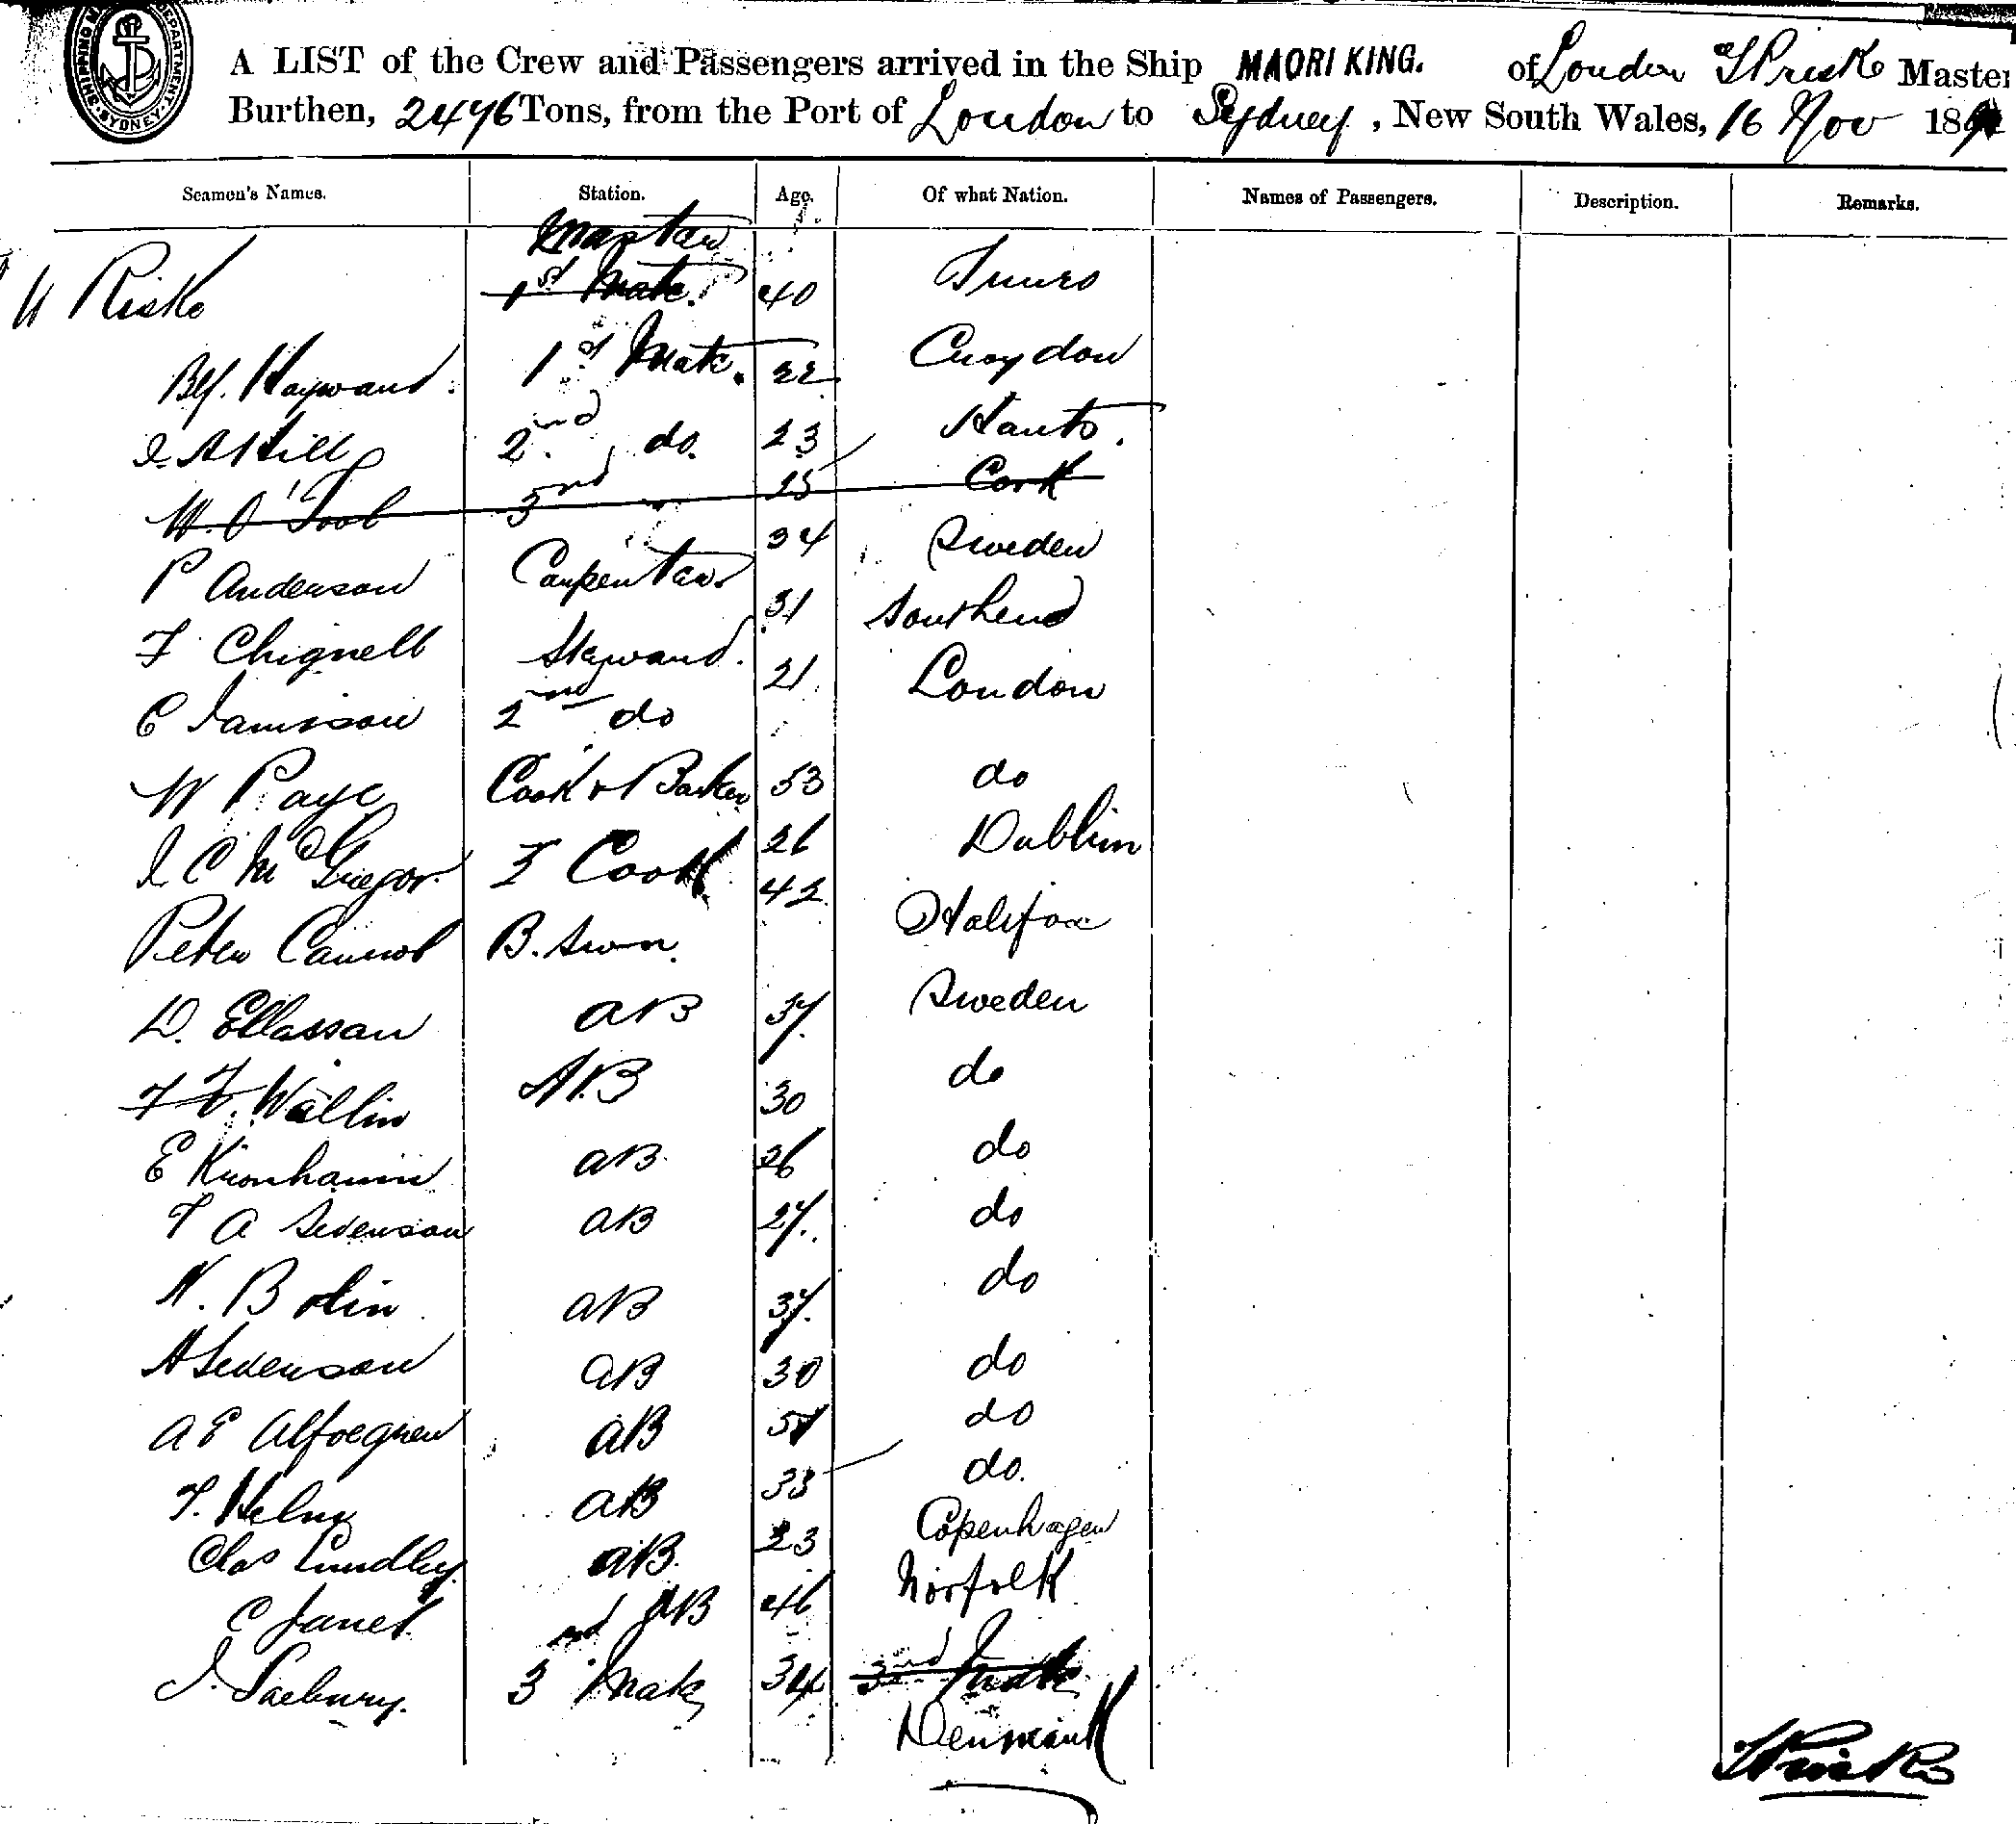 SHIPPING MASTER'S DEPARTMENT. SYDNEY.
A LIST of the Crew and Passengers arrived in the Ship MAORI KING. of London Master
Burthen, 2476 Tons, from the Port of London to Sydney, New South Wales, 16 Nov 189
Seamen's Names. Station. Age. Of what Nation. Names of Passengers. Description. Remarks.
Master
Riske 1st Mate. 40 Truro
Hayward 1st Mate. 22 Croydon
Hill 2nd do. 23 Hants.
W. O'Tool 3nd 25 Cork
P Anderson Carpenter 34 Sweden
F Chignell Steward. 31 Southend
C Jamison 2nd do 21 London
W Paye Cook & Baker 53 do
J C McGregor 2 Cook 26 Dublin
Peter B. Swn. 42 Halifax
D. Ellassan AB 37. Sweden
Wallin AB 30 do
E AB 26 do
A Sevenson AB 27. do
N. Bolin AB 37. do
A Sevenson AB 30 do
A E AB 51 do
AB 33 do.
Chas AB. 23 Copenhagen
C Janet AB 46 Norfolk
J. 3nd Mate 34 3nd Mate
Denmark